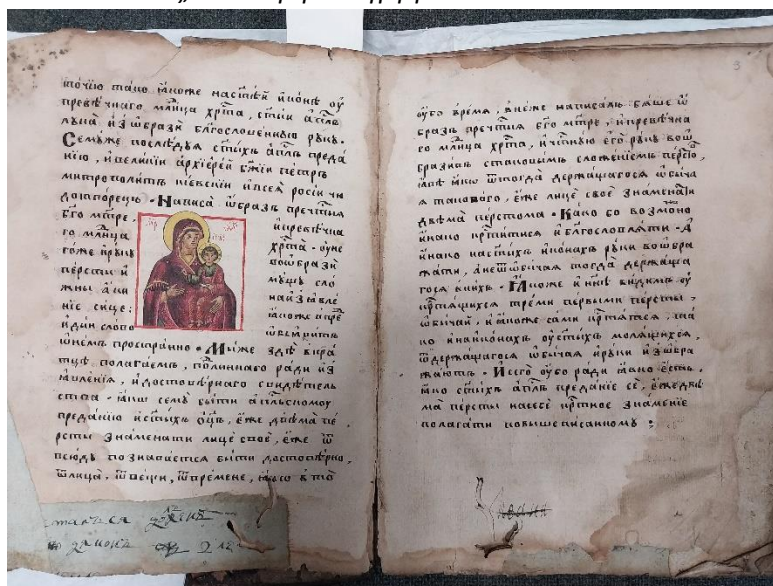 точїю тако ꙗкоже на стѣй иконѣ ѹ
превѣчнаго млнца хрта, стый апслъ
лука изѡбрази блгословенную руку.
Семуже послѣдуя стыхъ апслъ преда
нїю, и великїй архїерей бжїй петръ
митрополитъ кїевскїй и всея росїи чю
дотворецъ. Написа ѡбразъ пречтыя
бго мтре, и превѣчна
го млнца хрта. ѹ не
гоже и руку воѡбрази
персты и мущу сло
нїе сице:
ѡ нем пространно. Мы же здѣ вкра
тцѣ полагаемъ, ради из
ꙗвленїя, и достовѣрнаго свидѣтель
ства. ꙗкѡ сему быти апслъскому
преданїю и стыхъ оцъ, еже двѣма пе
рсты знаменати лице свое, еже ѿ
всюдѹ познавается быти достовѣрно,
ѿ лица, ѿ вещи, ѿ времене, ꙗкѡ в то
3
ѹбо время, внеже написанъ бяше ѡ
бразъ пречтыя бго мтре, и превѣчна
го млнца хрта, и чтную его руку воѡ
бразивъ становымъ сложенїемъ перстъ,
ꙗвѣ ꙗкѡ ѿ тогда держащагося ѡбыча
я таковаго, еже лице свое знаменати
двѣма перстома. Како бо возможно
инако крститися и благословляти. А
инако на стыхъ иконахъ руки воѡбра
жати, а не ѿ ѡбычая тогда держаща
гося в нихъ. Ꙗкоже и ннѣ видимъ ѹ
крстящихся треми первыми персты,
ѡбычай. и ꙗкоже сами крстятся, та
ко и на иконахъ ѹ стыхъ молящихся,
ѿ держащагося ѡбычая и руки изѡбра
жаютъ. И сего ѹбо ради ꙗвно есть,
ꙗко стыхъ апслъ преданїе се, еже двѣ
ма персты на себѣ крстное знаменїе
полагати по вышеписанному: